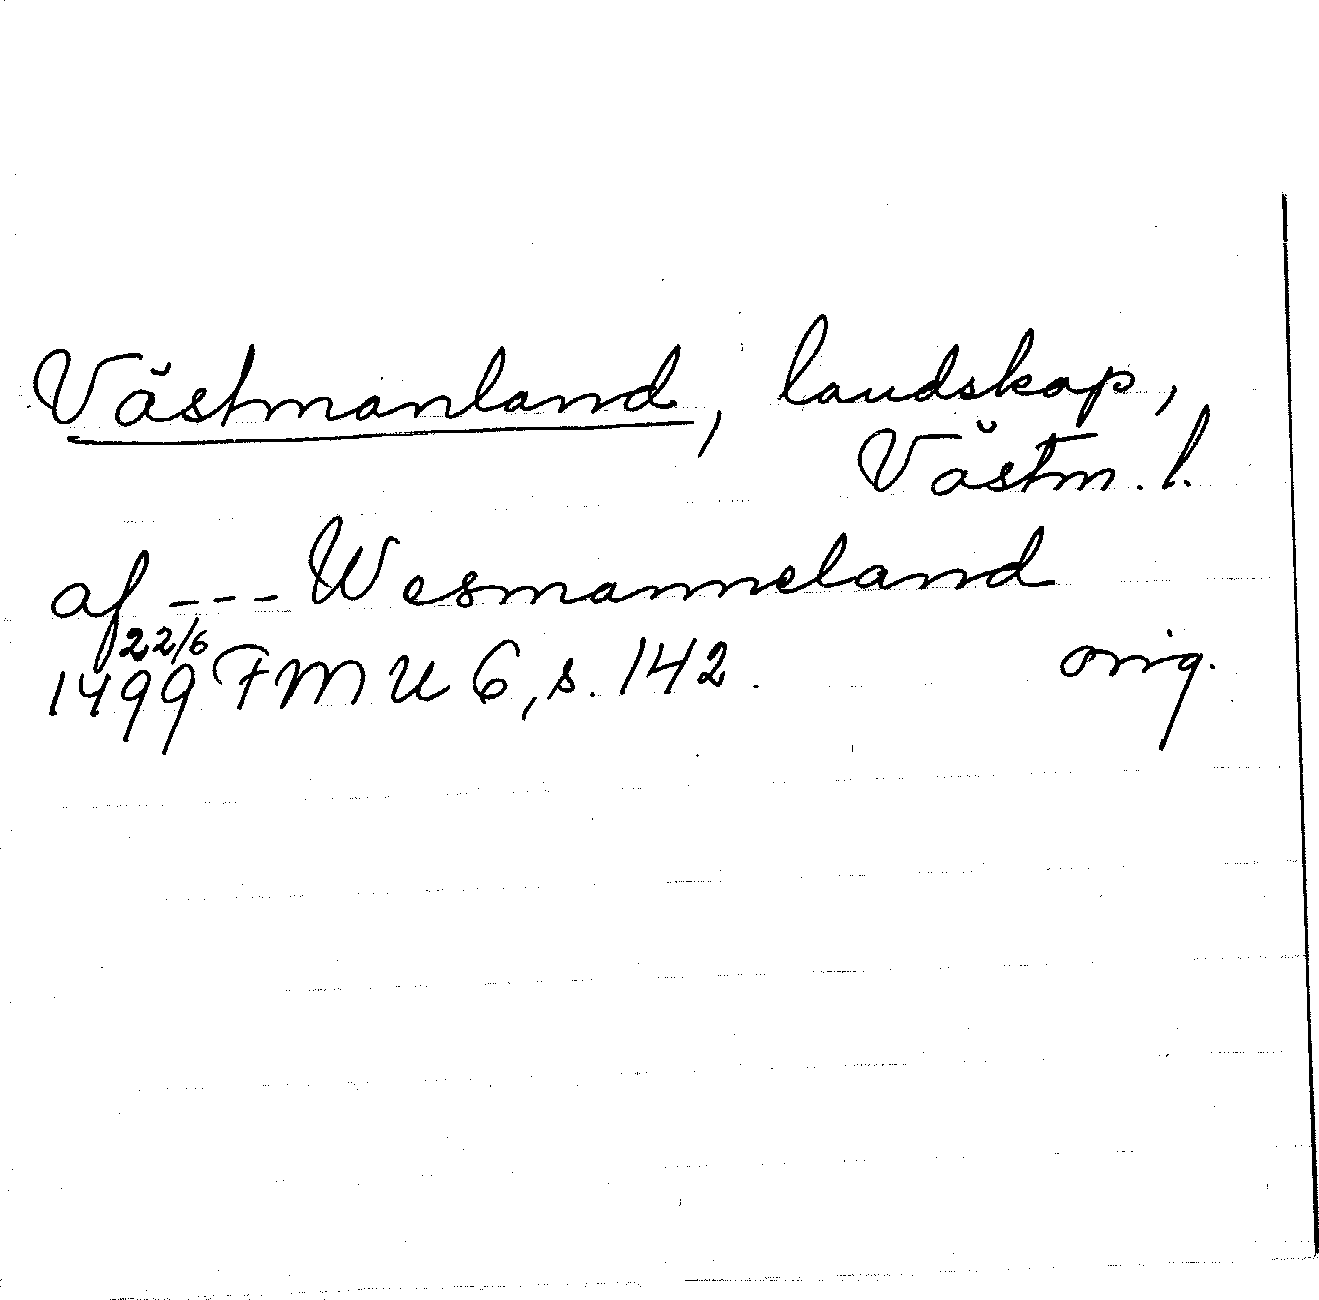 Västmanland, landskap,
Västm. l.
af --- Wesmanneland
22/6
1499 FMU 6, s. 142. orig.